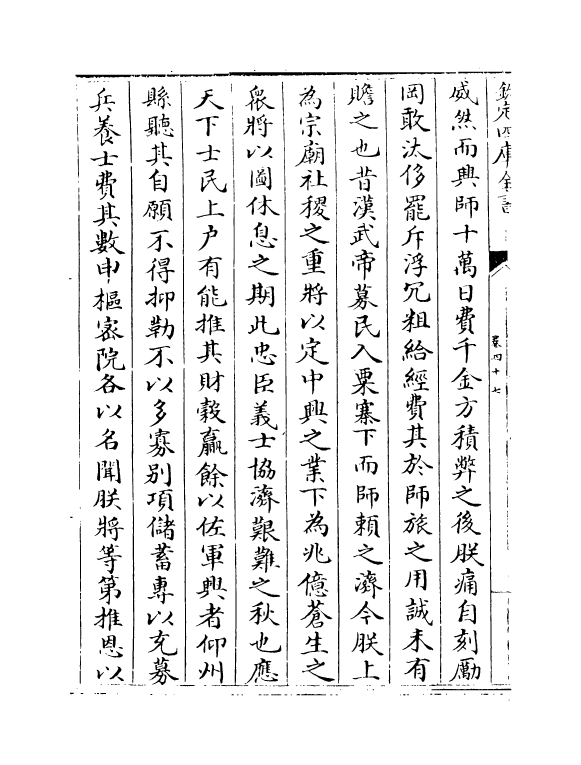 欽定四庫全書
卷四十七
威然而興師十萬日費千金方積弊之後朕痛自刻勵
罔敢汰侈罷斥浮冗粗給經費其於師旅之用誠未有
贍之也昔漢武帝募民入粟塞下而師頼之濟今朕上
為宗廟社稷之重將以定中興之業下為兆億蒼生之
衆將以圖休息之期此忠臣義士協濟艱難之秋也應
天下士民上户有能推其財穀贏餘以佐軍興者仰州
縣聽其自願不得抑勒不以多寡别項儲蓄專以充募
兵養士費其數申樞宻院各以名聞朕將等第推恩以